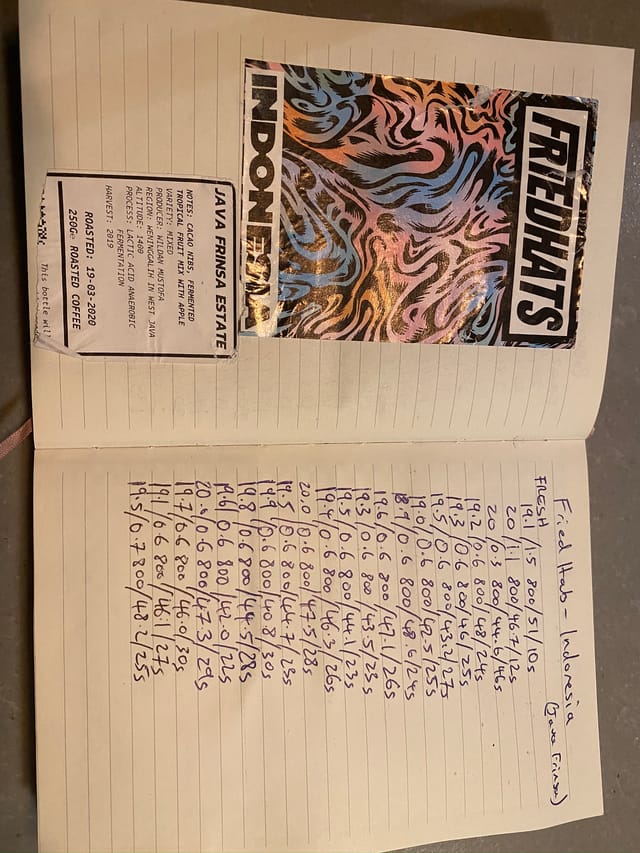 FRIEDHATS
INDONESIA
JAVA FRINSA ESTATE
NOTES: CACAO NIBS, FERMENTED
TROPICAL FRUIT MIX WITH APPLE
VARIETY: MIXED
PRODUCER: WILDAN MUSTOFA
REGION: WENINGGALIH IN WEST JAVA
ALTITUDE: 1400
PROCESS: LACTIC ACID ANAEROBIC
FERMENTATION
HARVEST: 2019
ROASTED: 19-03-2020
250G℮ ROASTED COFFEE
This bottle will
Fried Hats - Indonesia
(Java Frinsa)
FRESH
19.1/1.5 800/51/10s
20/1.1 800/46.7/12s
20/0.3 800/44.6/46s
19.2/0.6 800/48/24s
19.3/0.6 800/46/25s
19.5/0.6 800/43.2/27s
19.0/0.6 800/42.5/25s
18.9/0.6 800/48.6/24s
19.6/0.6 800/47.1/26s
19.3/0.6 800/43.5/23s
19.5/0.6 800/44.1/23s
19.4/0.6 800/46.3/26s
20.0/0.6 800/47.5/28s
19.5/0.6 800/44.7/23s
19.9/0.6 800/40.8/30s
19.8/0.6 800/44.5/28s
19.6/0.6 800/42.0/22s
20.0/0.6 800/47.3/29s
19.7/0.6 800/46.0/30s
19.1/0.6 800/46.1/27s
19.5/0.7 800/48.2/25s